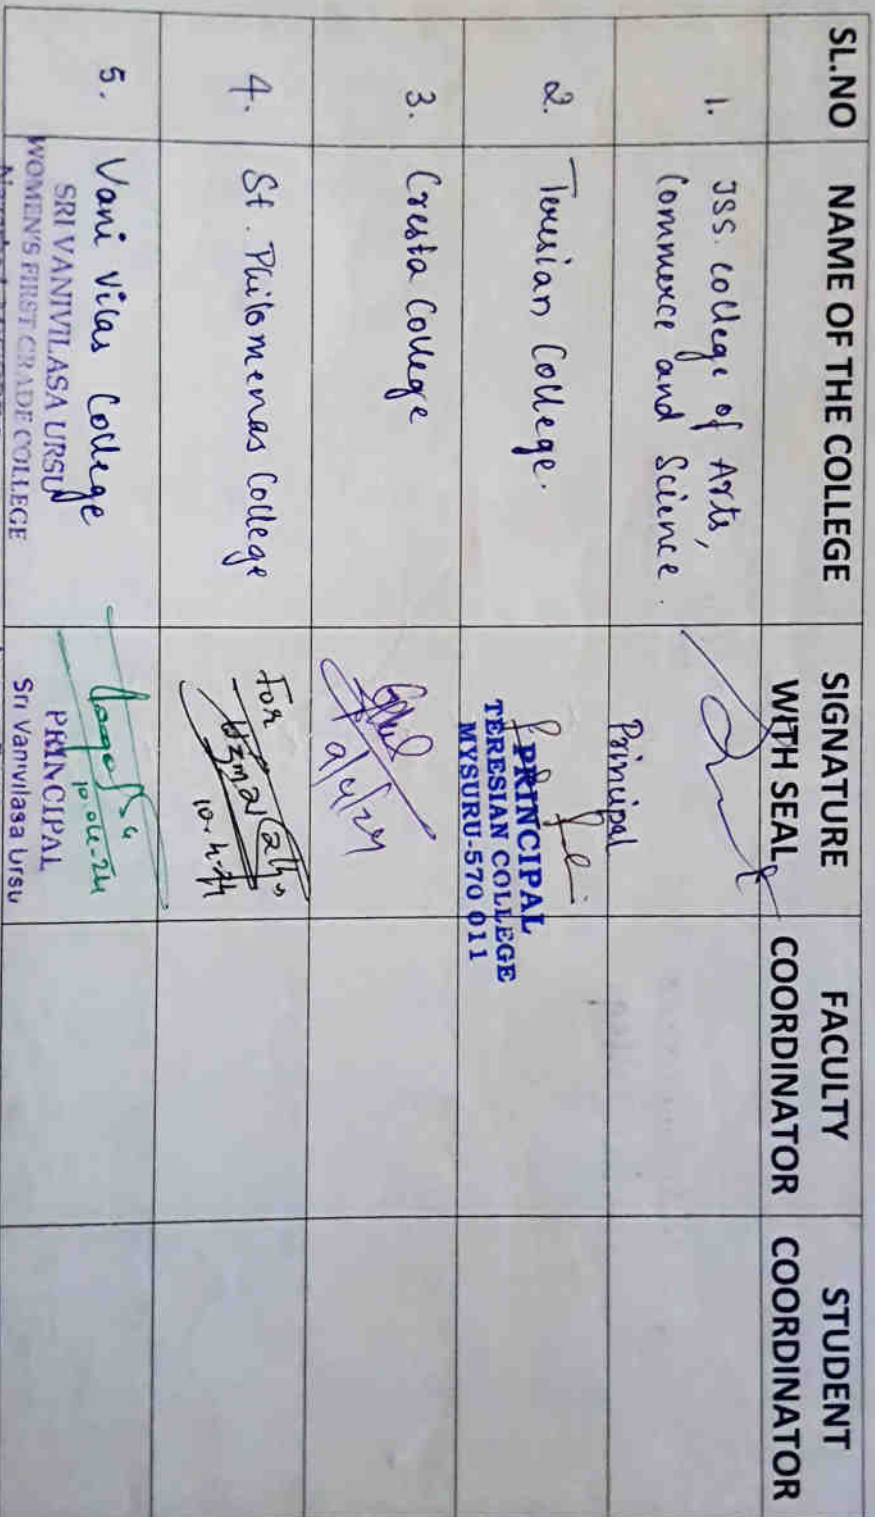 SL.NO NAME OF THE COLLEGE SIGNATURE WITH SEAL FACULTY COORDINATOR STUDENT COORDINATOR
1. JSS. College of Arts,
Commerce and Science.
Principal
2. Teresian College.
PRINCIPAL
TERESIAN COLLEGE
MYSURU-570 011
3. Cresta College
9/4/24
4. St. Philomenas College
For
10.4.24
5. Vani Vilas College
SRI VANIVILASA URSU
WOMEN'S FIRST GRADE COLLEGE
10.04-24
PRINCIPAL
Sri Vanivilasa Ursu